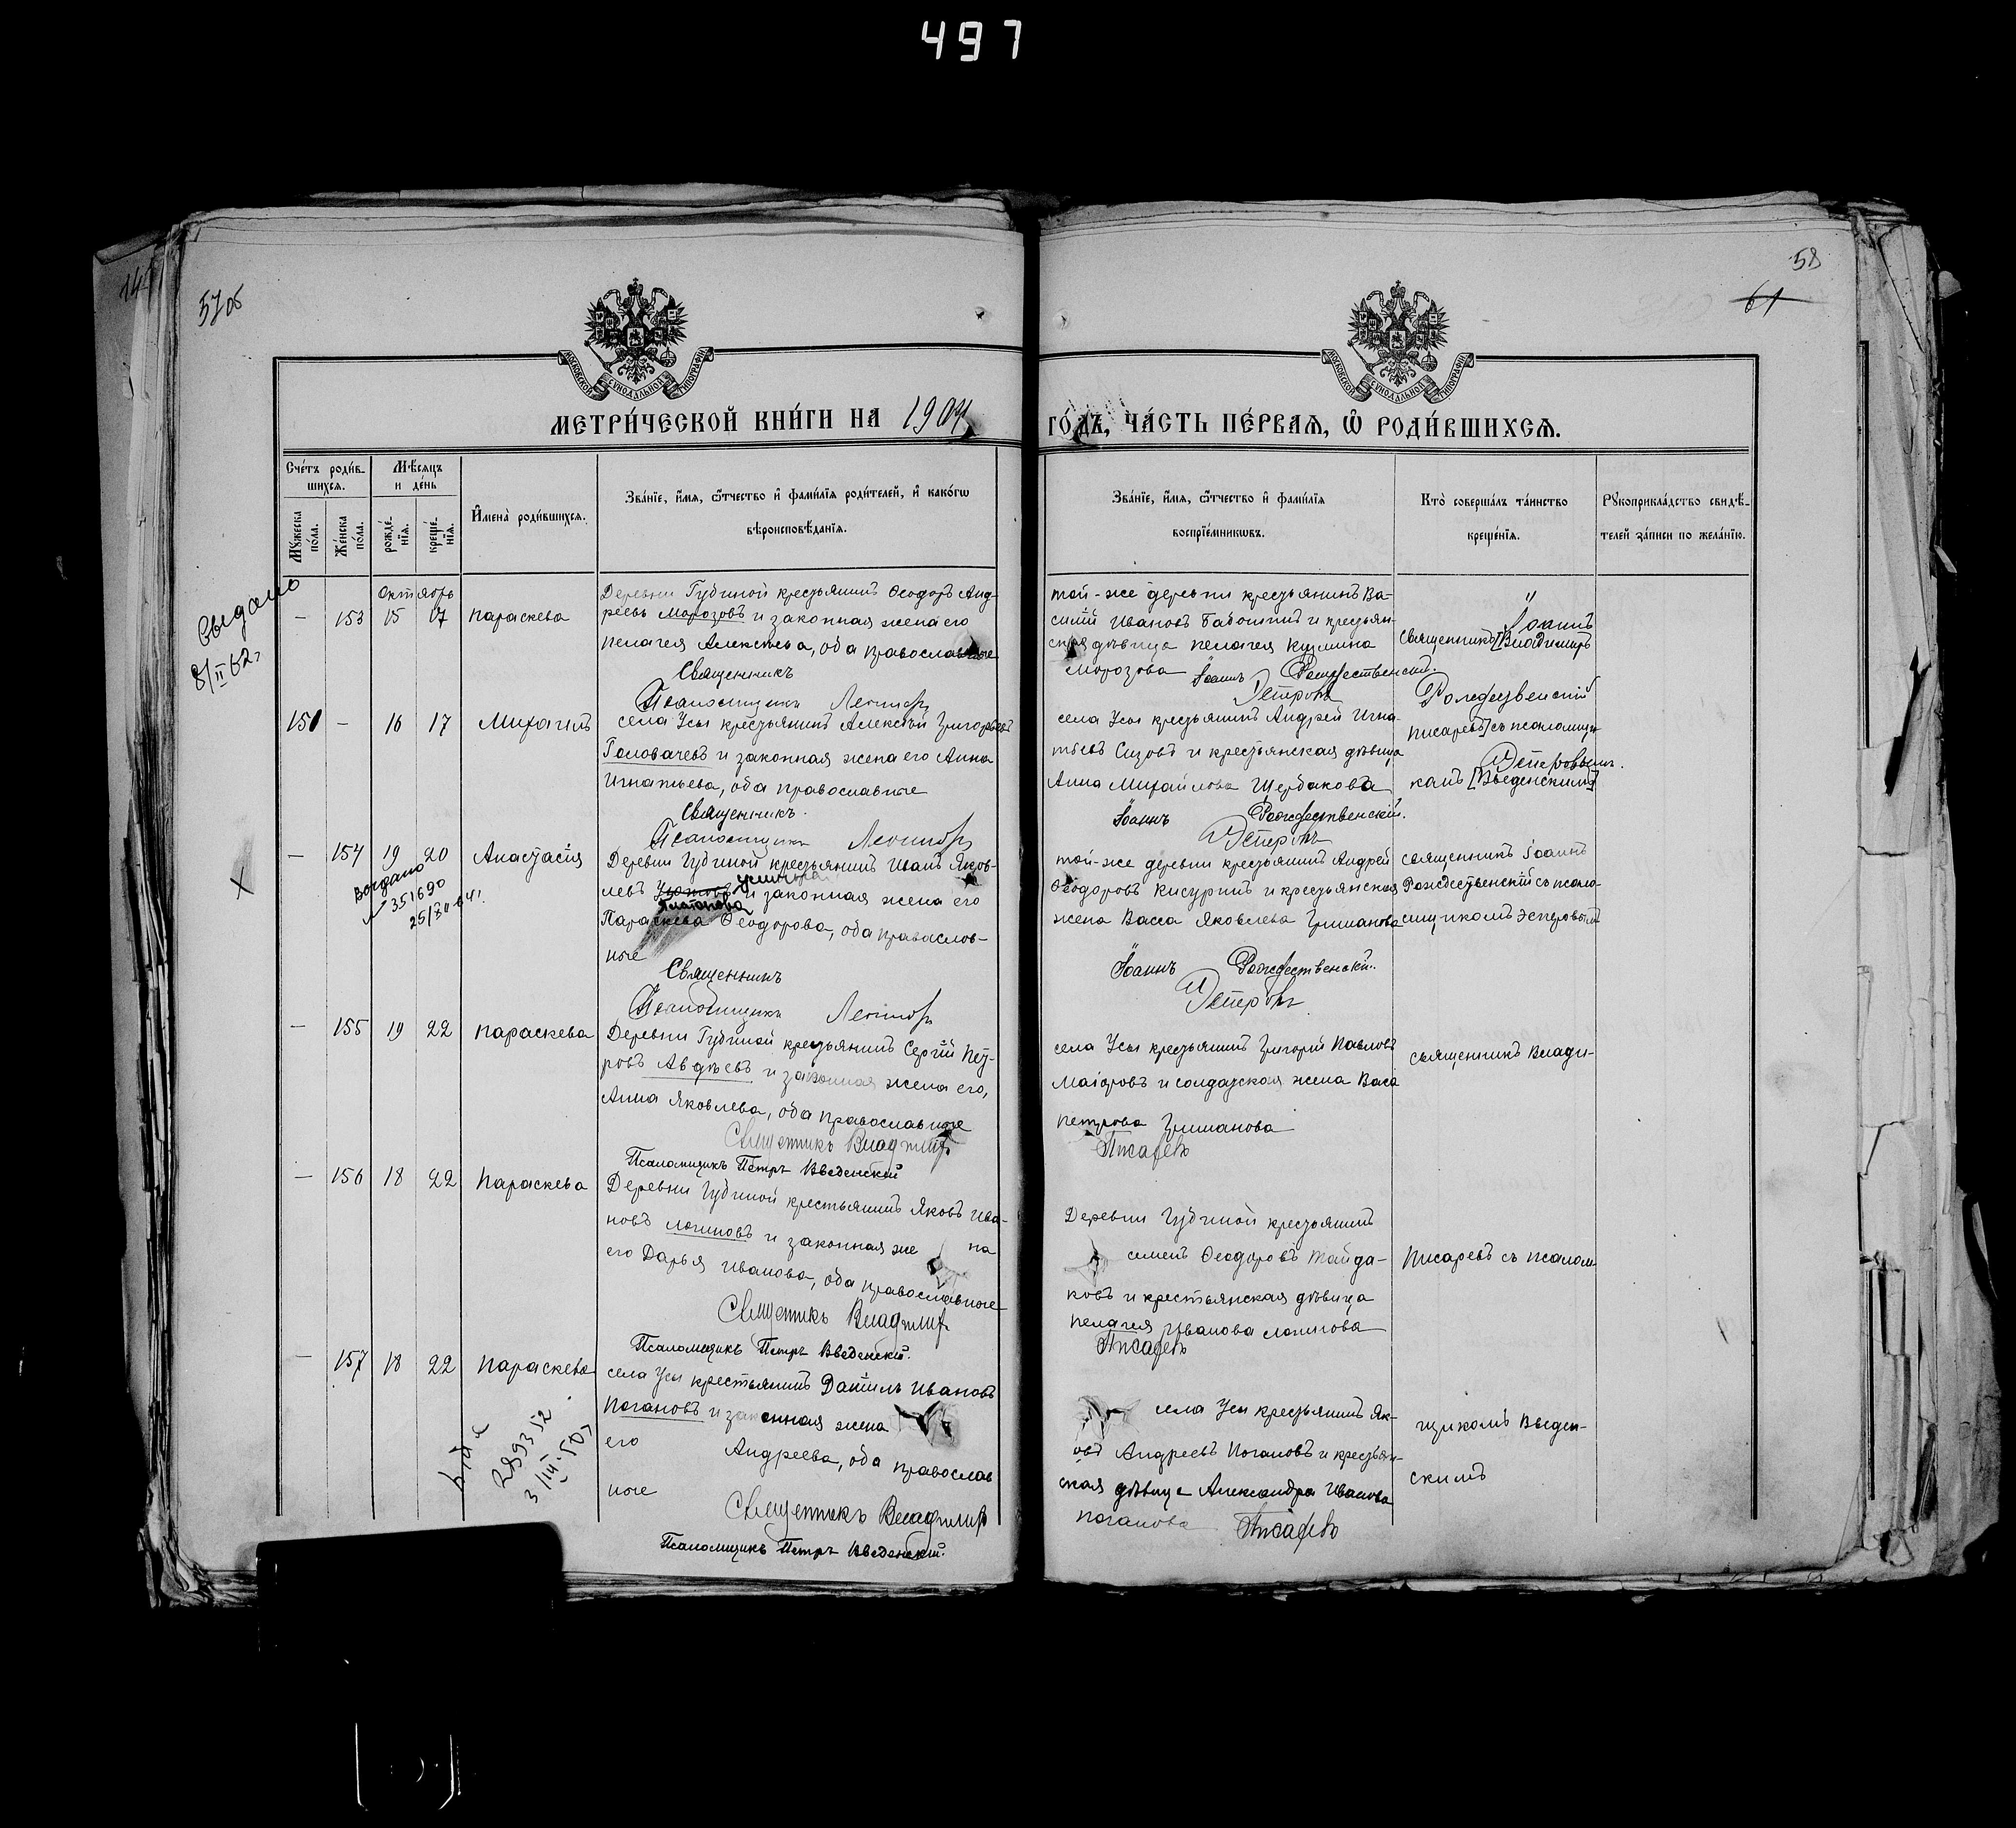 497
14
57об
58
61
МОСКОВСКОЙ СѴНОДАЛЬНОЙ ТИПОГРАФІИ
МОСКОВСКОЙ СѴНОДАЛЬНОЙ ТИПОГРАФІИ
МЕТРИ́ЧЕСКОЙ КНИ́ГИ НА 1904 ГО́ДЪ, ЧА́СТЬ ПЕ́РВАЯ, Ѡ РОДИ́ВШИХСЯ.
Сче́тъ роди́в-
шихся.
Мѣ́сяцъ
и де́нь
Мꙋ́жеска по́ла.
Же́нска по́ла.
рожде́-
нїя.
креще́-
нїя.
И҆мена̀ роди́вшихся.
Зва́нїе, и҆́мя, ѻ҆́тчество и҆ фами́лїя роди́телей, и҆ како́гѡ
вѣроисповѣ́данїя.
Зва́нїе, и҆́мя, ѻ҆́тчество и҆ фами́лїя
воспрїе́мникѡвъ.
Кто̀ соверша́лъ та́инство
креще́нїя.
Рꙋкоприкла́дство свидѣ́-
телей за́писи по жела́нїю.
Выдано
8/II 62г
октябрь
— 153 15 17 Параскева
Деревни Губиной крестьянинъ Ѳеодоръ Анд-
реевъ Морозовъ и законная жена его
Пелагея Алексѣева, оба православные
Священникъ
Псаломщикъ
той-же деревни крестьянинъ Ва-
силій Ивановъ и крестьян-
ская дѣвица Пелагея Кузмина
Морозова Іоаннъ Рождественскій.
Іоаннъ
Священникъ [Владимиръ
Рождественскій
151 — 16 17 Михаилъ
села Усы крестьянинъ Алексѣй Григорьевъ
Головачевъ и законная жена его Анна
Игнатьева, оба православные
Священникъ.
Псаломщикъ
села Усы крестьянинъ Андрей Игна-
тьевъ Сизовъ и крестьянская дѣвица
Анна Михайлова Щербакова
Іоаннъ Рождественскій.
Писаревъ] съ псаломщи-
комъ [Введенскимъ]
X
— 154 19 20 Анастасія
Выдано
№ 351690
Деревни Губиной крестьянинъ Иванъ Яков-
левъ и законная жена его
Платонова
Параскева Ѳеодорова, оба православ-
ные
Священникъ
Псаломщикъ
той-же деревни крестьянинъ Андрей
Ѳеодоровъ Кисуринъ и крестьянская
жена Васса Яковлева Гришанова
Іоаннъ Рождественскій.
священникъ Іоаннъ
Рождественскій съ псало-
мщикомъ
— 155 19 22 Параскева
Деревни Губиной крестьянинъ Сергій Пет-
ровъ Авдѣевъ и законная жена его,
Анна Яковлева, оба православные
Священникъ Владимiръ
Псаломщикъ Петръ Введенскій
села Усы крестьянинъ Григорій Павловъ
Маіоровъ и солдатская жена Васса
Петрова Гришанова
Писаревъ
священникъ Влади-
— 156 18 22 Параскева
Деревни Губиной крестьянинъ Яковъ Ива-
новъ Логиновъ и законная же на
его Дарья Иванова, оба православные
Священникъ Владимiръ
Псаломщикъ Петръ Введенскій.
Деревни Губиной крестьянинъ
Семенъ Ѳеодоровъ Майда-
ковъ и крестьянская дѣвица
Пелагея Иванова Логинова
Писаревъ
Писаревъ съ псалом-
— 157 18 22 Параскева
289352
3/III-50г
села Усы крестьянинъ Даніилъ Ивановъ
Погановъ и законная жена
его Андреева, оба православ
ные
Священникъ Владимiръ
Псаломщикъ Петръ Введенскій.
села Усы крестьянинъ Як-
овъ Андреевъ Погановъ и крестьян-
ская дѣвица Александра Иванова
Поганова Писаревъ
щикомъ Введен-
скимъ